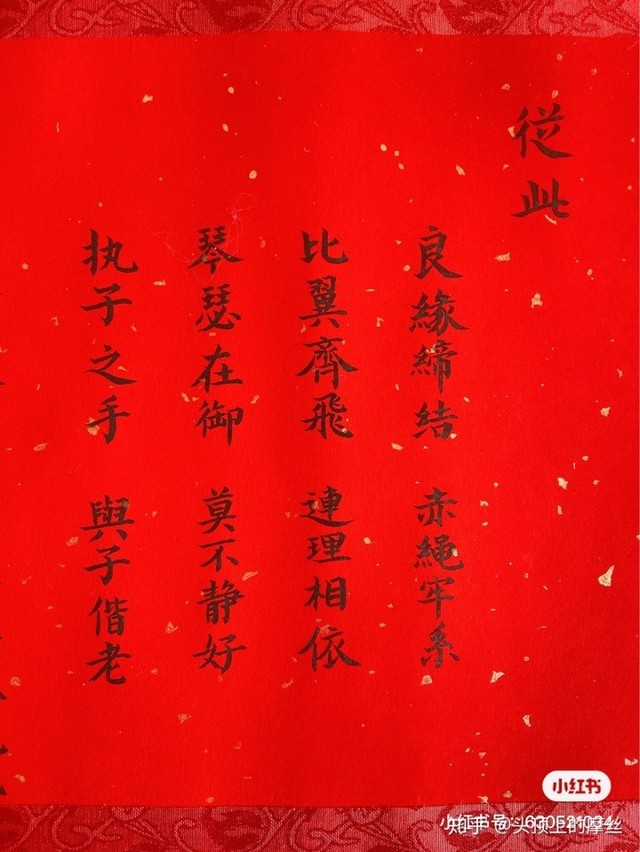 從此
良緣締结 赤繩牢系
比翼齊飛 連理相依
琴瑟在御 莫不静好
执子之手 與子偕老
小红书
知乎 @头顶上的摩丝